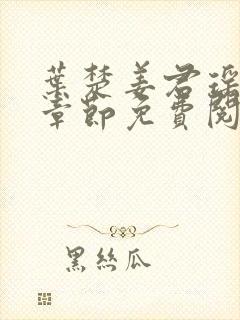 葉楚姜君瑤
章節免費閱
黑絲瓜